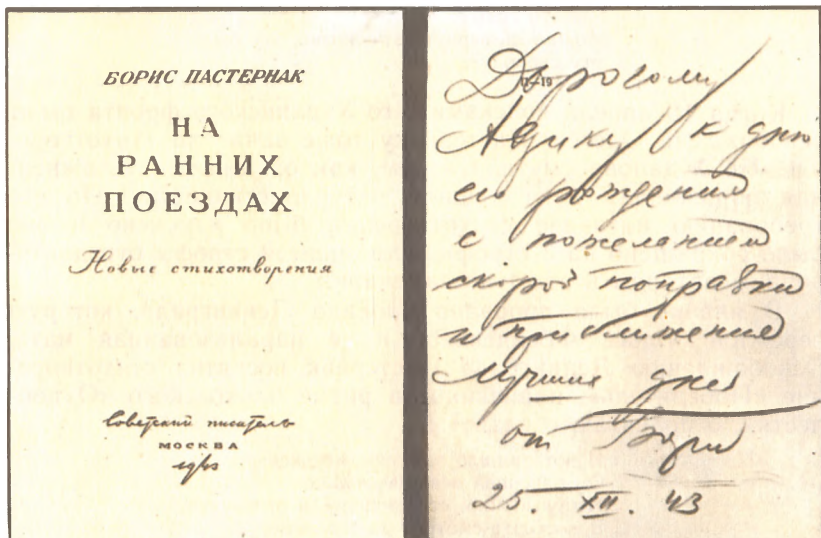 БОРИС ПАСТЕРНАК
НА
РАННИХ
ПОЕЗДАХ
Новые стихотворения
Советский писатель
МОСКВА
1943
Дорогому
к дню
его рождения
с пожеланием
скорой поправки
и приближения
лучших дней
от Бори
25. XII. 43